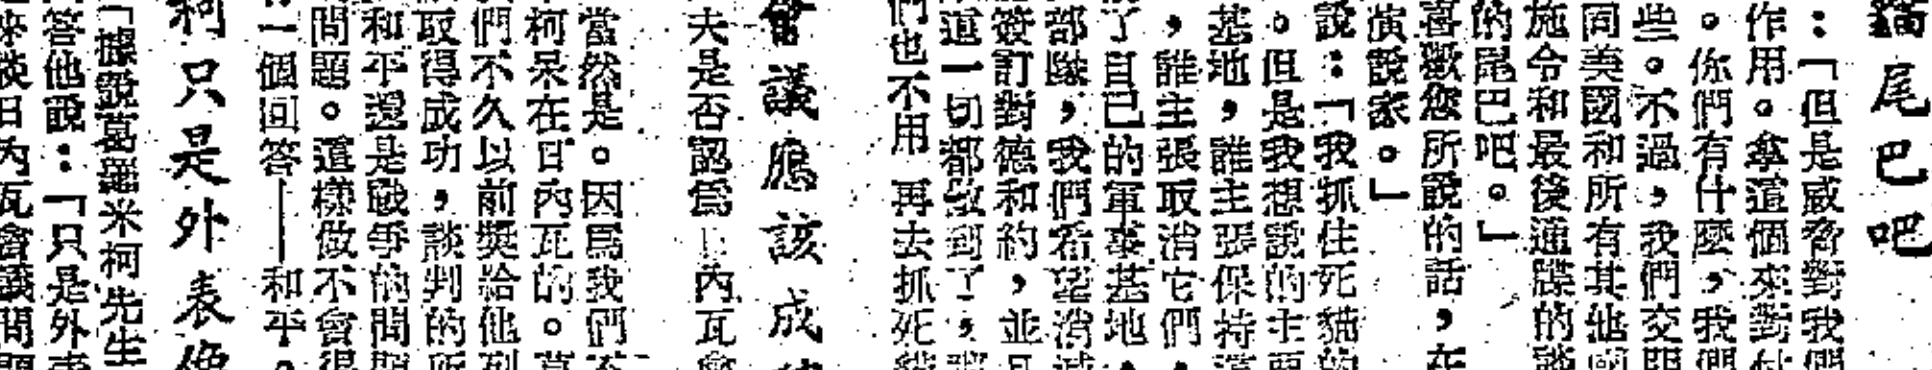 貓尾巴吧
：「但是威脅對我們
作用。拿這個來對付
。你們有什麼，我們
些。不過，我們交
同美國和所有其他國
施令和最後通牒的談
的尾巴吧。」
喜歡您所說的話，在
演說家。」
說：「我抓住死貓的
。但是我想說的主要
基地，誰主張保持這
，誰主張取消它們，
了自己的軍事基地，
部隊，我們希望消滅
簽訂對德和約，並且
道一切都做到了，
們也不用再去抓死貓
會議應該成
夫是否認為日內瓦會
當然是。因為我們不
柯呆在日內瓦的。葛
們不久以前獎給他列
取得成功，談判的所
和平還是戰爭的問題
問題。這樣做不會得
一個回答——和平。
柯只是外表像
「據說葛羅米柯先生
答他說：「只是外表
來談日內瓦會議問題